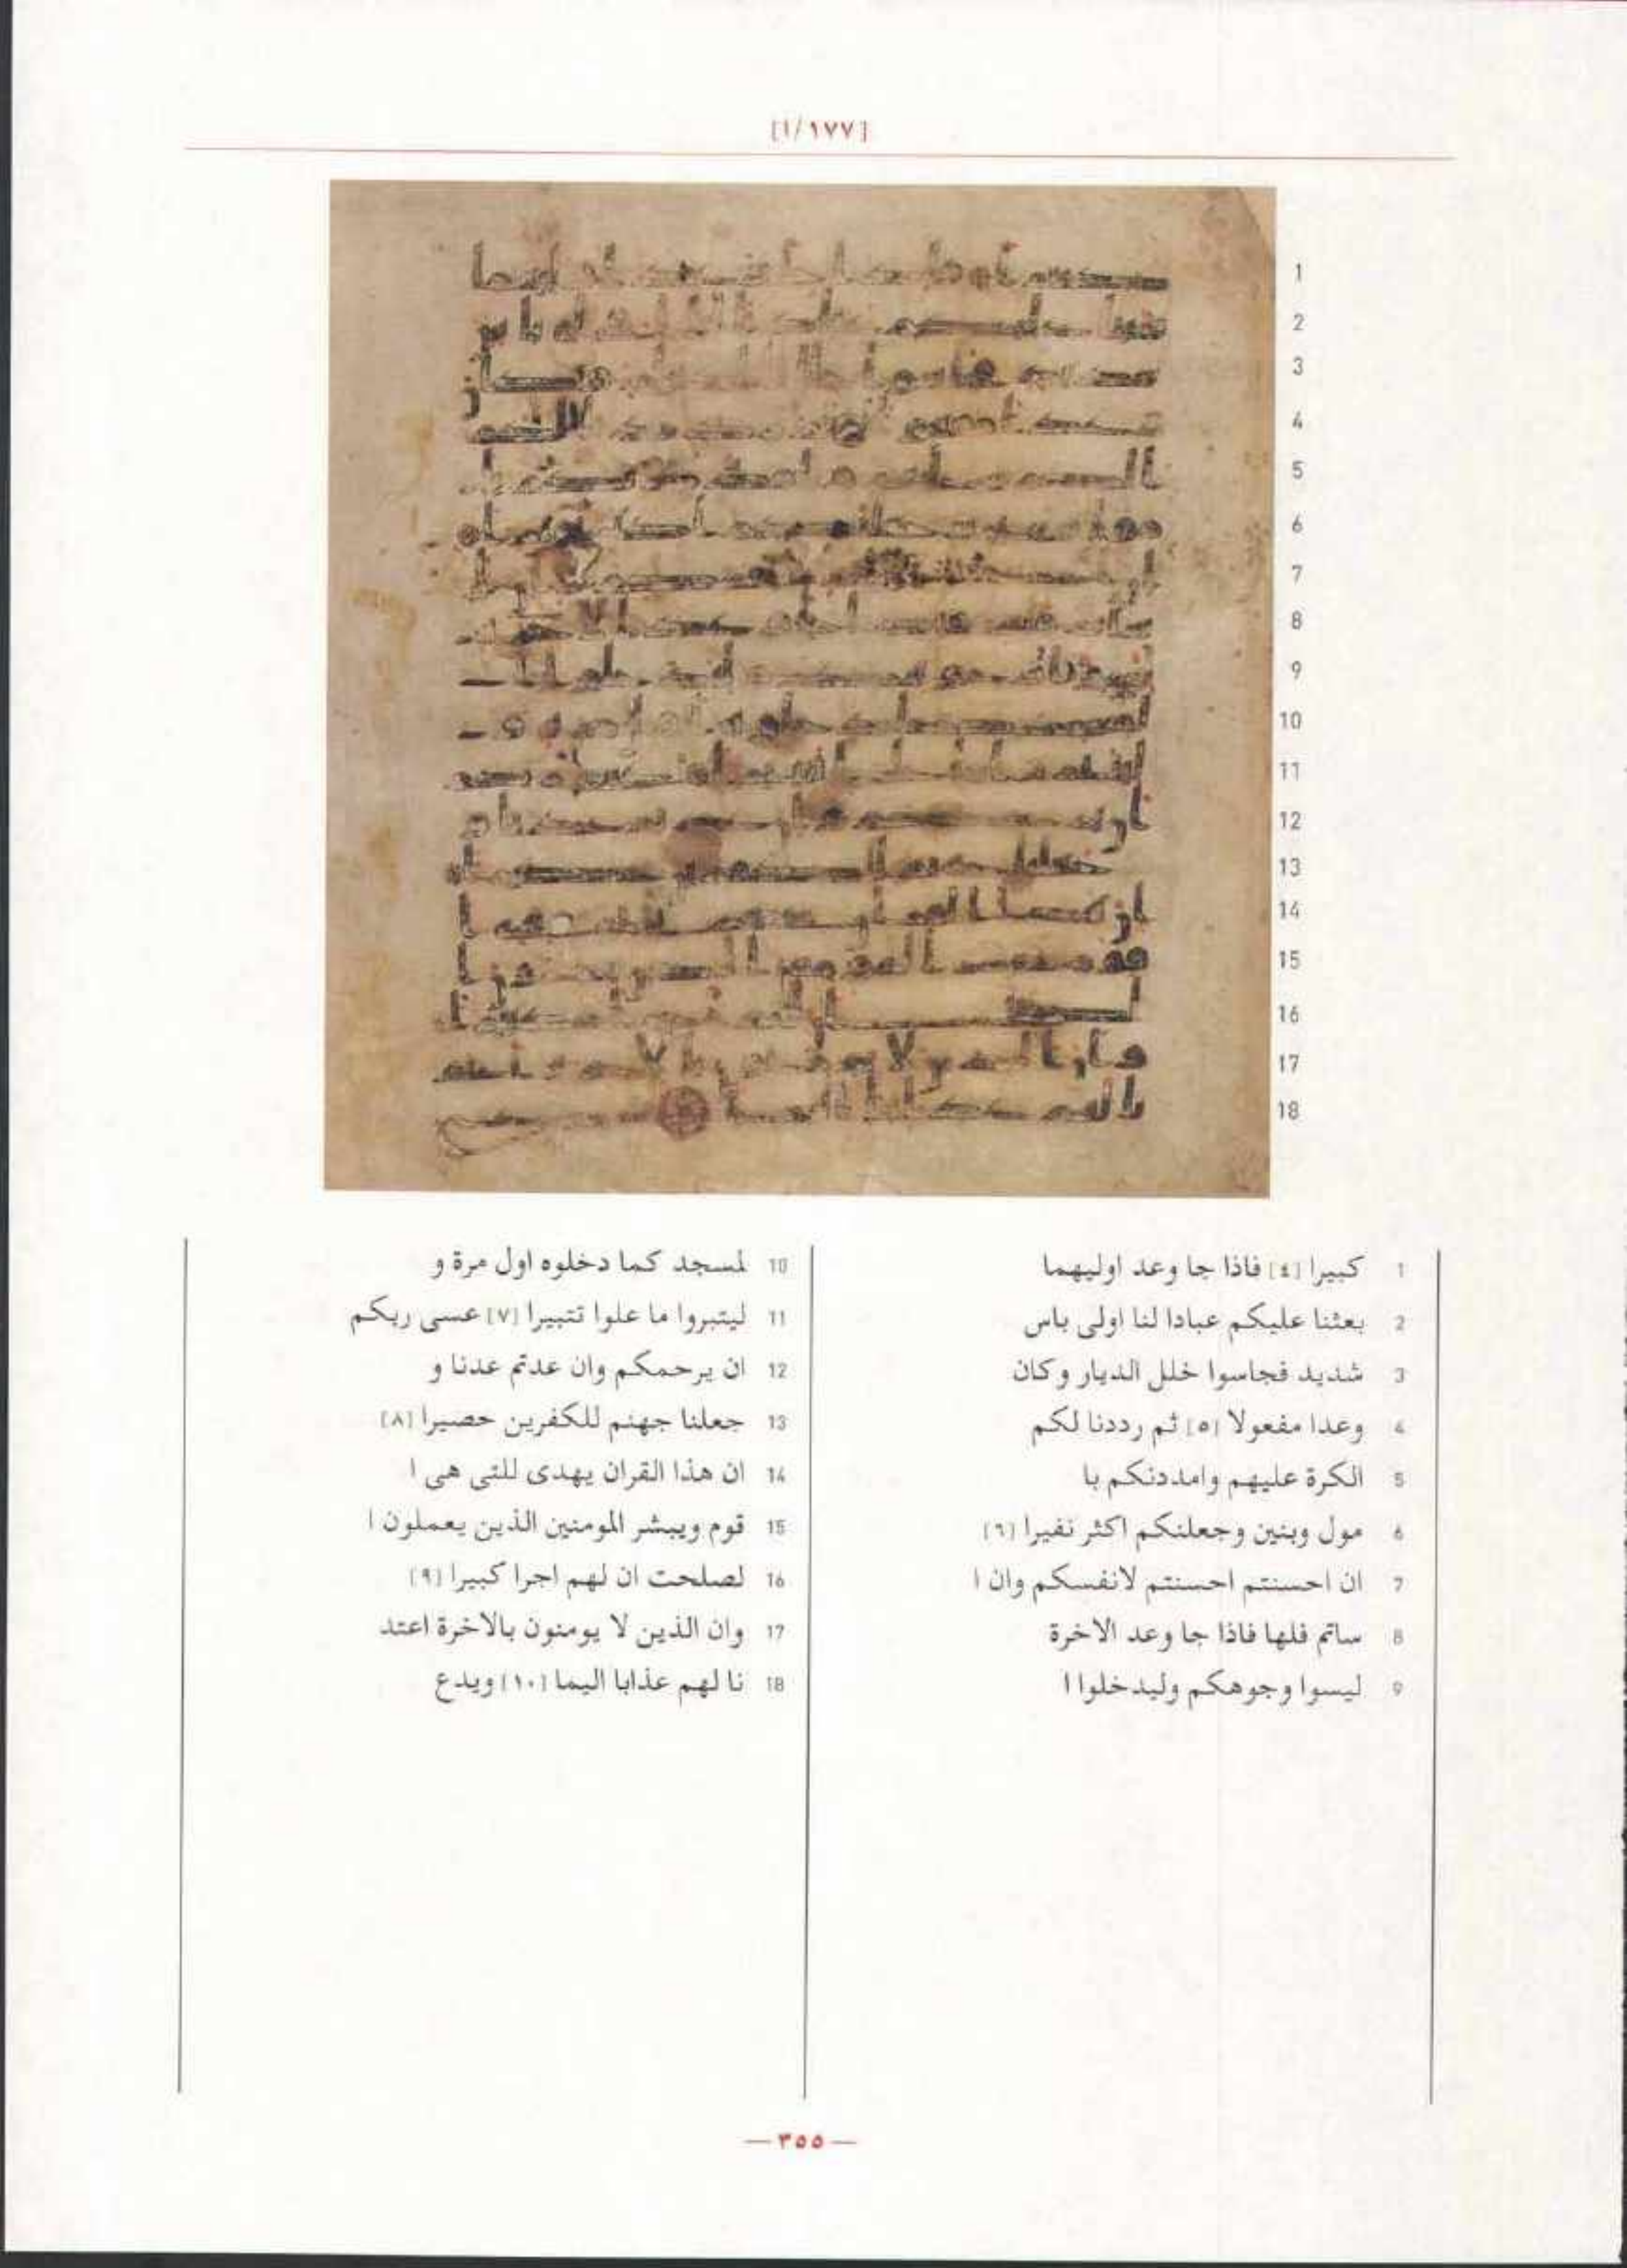 [١٧٧/ا]
1 كبيرا [٤] فاذا جا وعد اوليهما
2 بعثنا عليكم عبادا لنا اولى باس
3 شديد فجاسوا خلل الديار وكان
4 وعدا مفعولا [٥] ثم رددنا لكم
5 الكرة عليهم وامددنكم با
6 مول وبنين وجعلنكم اكثر نفيرا [٦]
7 ان احسنتم احسنتم لانفسكم وان ا
8 ساتم فلها فاذا جا وعد الاخرة
9 ليسوا وجوهكم وليدخلوا ا
10 لمسجد كما دخلوه اول مرة و
11 ليتبروا ما علوا تتبيرا [٧] عسى ربكم
12 ان يرحمكم وان عدتم عدنا و
13 جعلنا جهنم للكفرين حصيرا [٨]
14 ان هذا القران يهدى للتى هى ا
15 قوم ويبشر المومنين الذين يعملون ا
16 لصلحت ان لهم اجرا كبيرا [٩]
17 وان الذين لا يومنون بالاخرة اعتد
18 نا لهم عذابا اليما [١٠] ويدع
— ٣٥٥ —